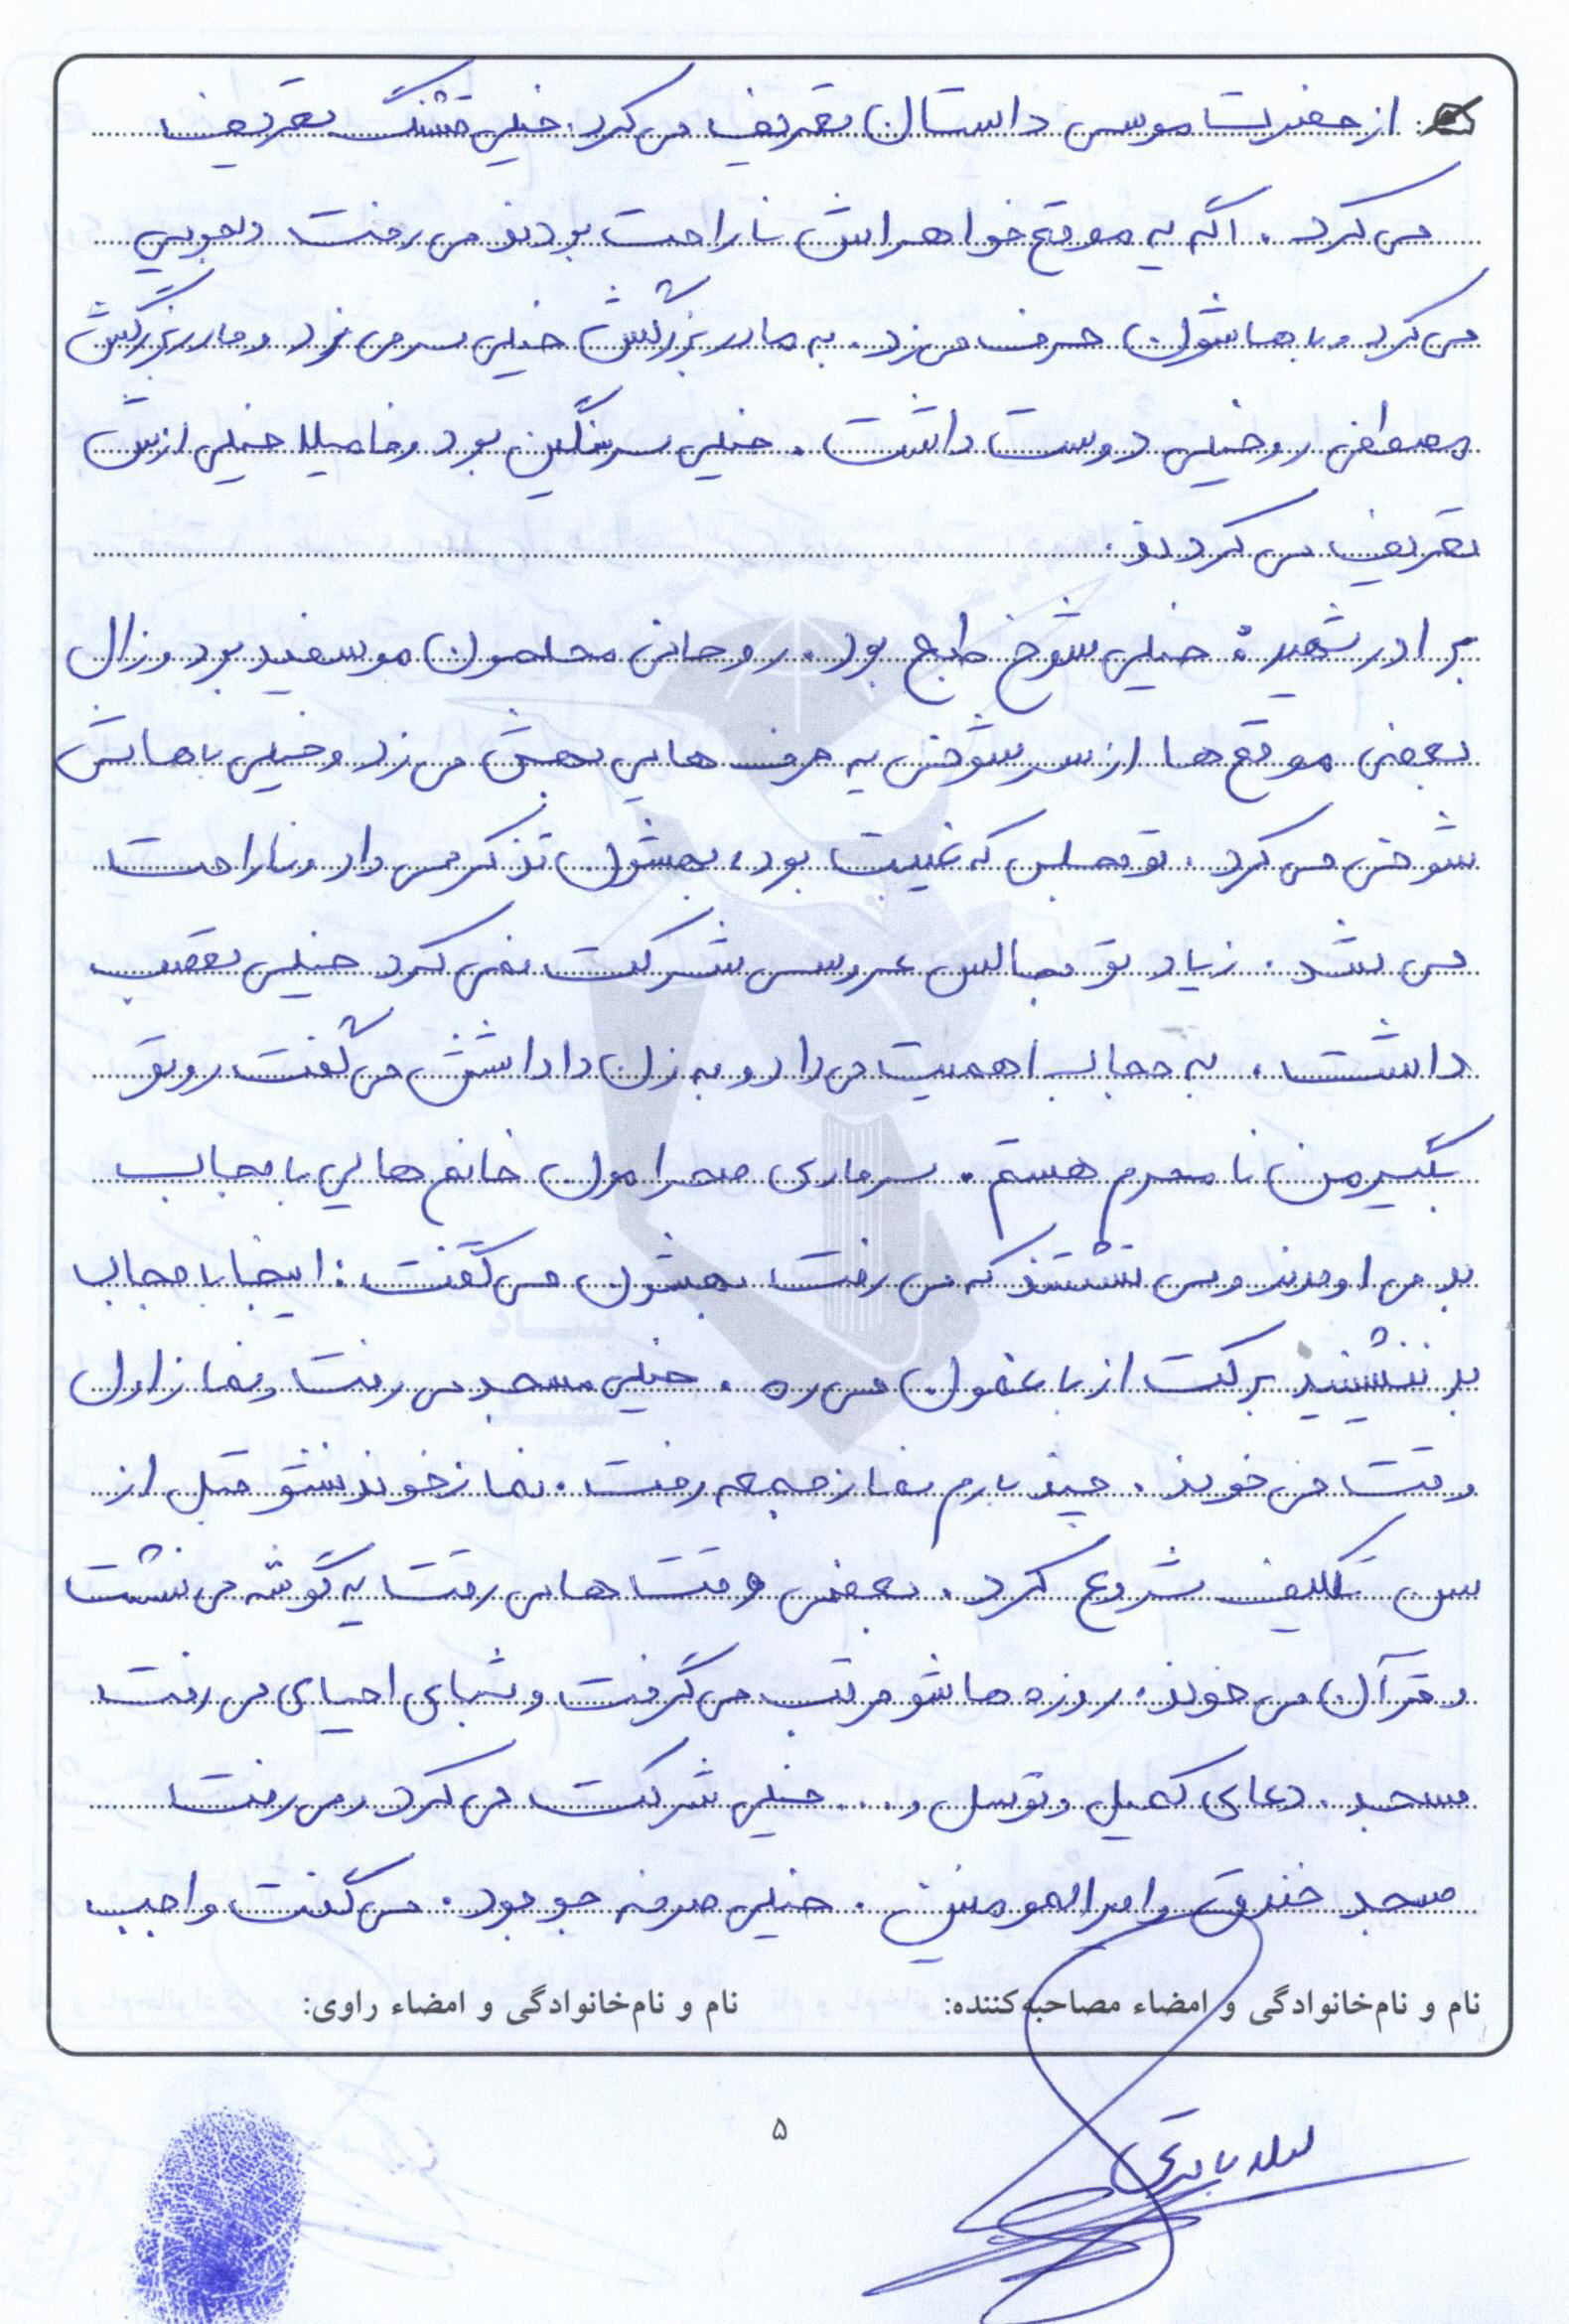 از حضرت موسی داستان تعریف می کرد. خیلی قشنگ تعریف
می کرد. اگه یه موقع خواهراش ناراحت بودند می رفت دلجویی
می کرد و باهاشون حرف می زد. به مادربزرگش خیلی سر می زد و مادربزرگش
مصطفی رو خیلی دوست داشت. خیلی سرسنگین بود و فامیلا خیلی ازش
تعریف می کردند.
برادر شهید: خیلی شوخ طبع بود. روحانی محلمون مو سفید بود و زال
بعضی موقع ها از سر شوخی یه حرف هایی بهش می زد و خیلی باهاش
شوخی می کرد. تو مجلسی که غیبت بود، بهشون تذکر می داد و ناراحت
می شد. زیاد تو مجالس عروسی شرکت نمی کرد خیلی تعصب
داشت. به حجاب اهمیت می داد و به زن داداشش می گفت رو تو
بگیر من نامحرم هستم. سرمازی صحرامون خانم هایی با حجاب
بد می اومدند و می نشستند که می رفت بهشون می گفت: اینجا با حجاب
بد ننشینید برکت از باغمون می ره. خیلی مسجد می رفت و نماز اول
وقت می خوند. چند بارم نماز جمعه رفت. نماز خوندنشو قبل از
سن تکلیف شروع کرد. بعضی وقت ها می رفت یه گوشه می نشست
و قرآن می خوند. روزه هاشو مرتب می گرفت و شبای احیای می رفت
مسجد. دعای کمیل و توسل و .... خیلی شرکت می کرد و می رفت
مسجد خندق و امیرالمومنین. خیلی صرفه جو بود. می گفت واجب
نام و نام‌خانوادگی و امضاء مصاحبه‌کننده: نام و نام‌خانوادگی و امضاء راوی:
۵